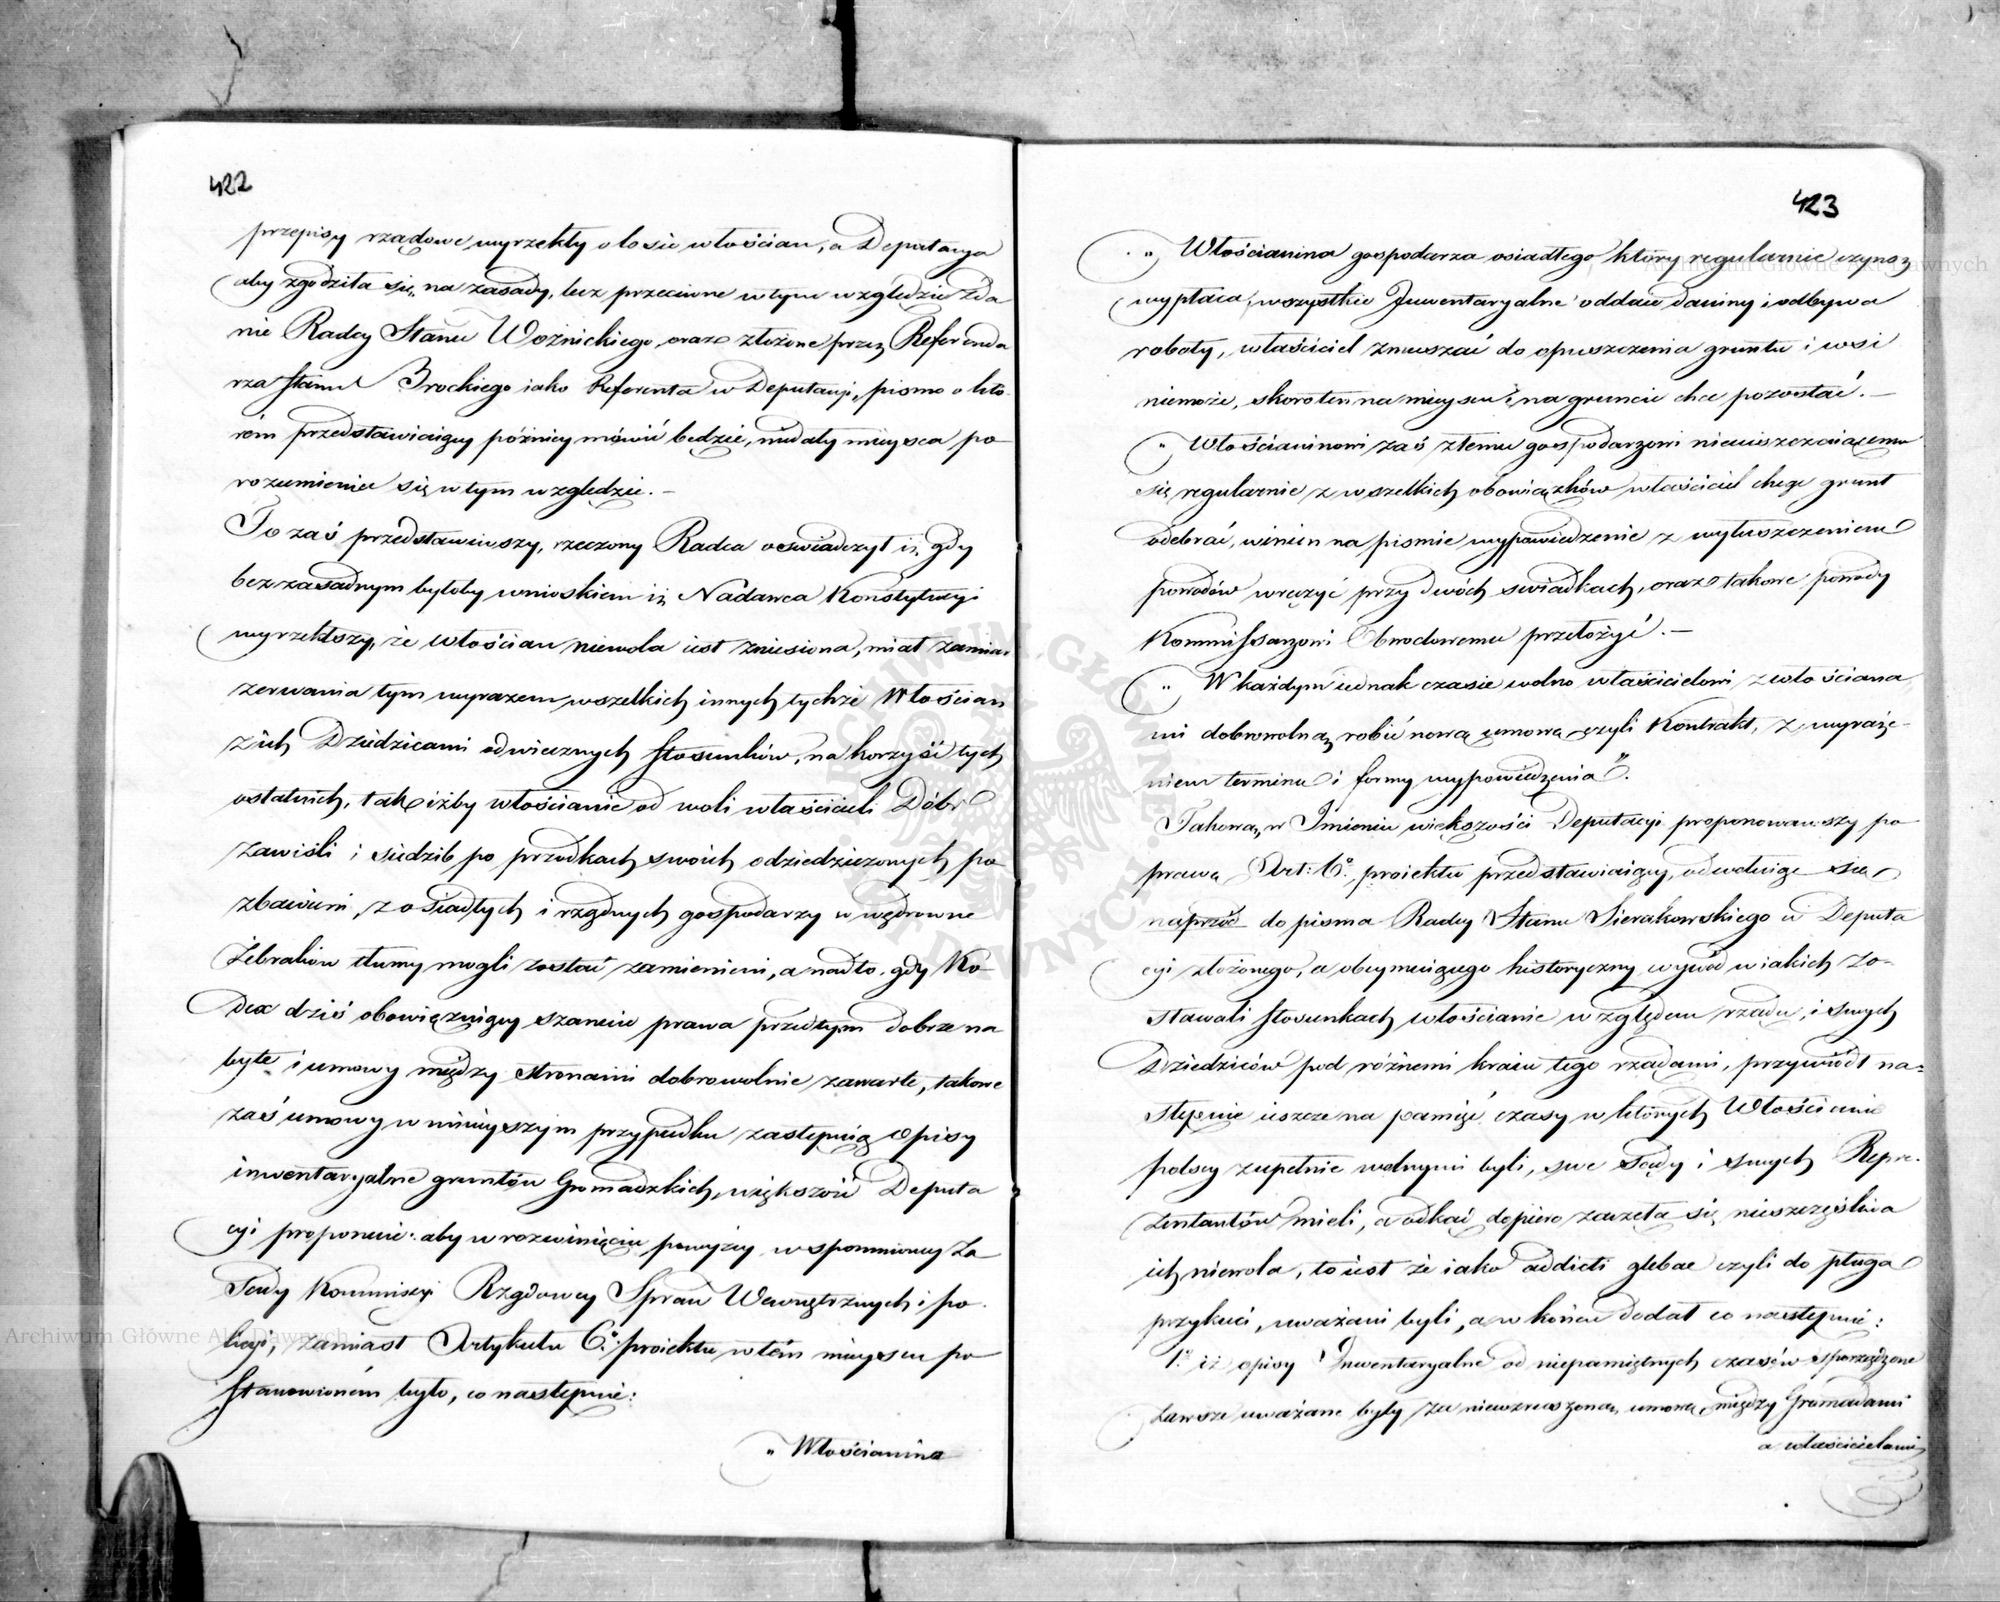 422
przepisy rządowe wyrzekły o losie włościan, a Deputacya
aby zgodziła się na zasady, lecz przeciwne w tym względzie zda
nie Radcy Stanu Woźnickiego, oraz złożone przez Referenda
rza Stanu Brockiego iako Referenta w Deputacyi, pismo o któ-
rém przedstawiaiący późniey mówić będzie, niedały mieysca po
rozumienia się w tym względzie. —
To zaś przedstawiwszy, rzeczony Radca oświadczył iż gdy
bezzasadnym byłoby wnioskiem iż Nadawca Konstytucyi
wyrzekłszy, że włościan niewola iest zniesiona, miał zamiar
zerwania tym wyrazem wszelkich innych tychże Włościan
z ich Dziedzicami odwiecznych stosunków, na korzyść tych
ostatnich, tak iżby włościanie od woli właścicieli Dóbr
zawiśli i siedzib po przodkach swoich odziedziczonych po
zbawieni, z osiadłych i rządnych gospodarzy w wędrowne
żebraków tłumy mogli zostać zamienieni, a nadto, gdy Ko-
dex dziś obowiązuiący szanuie prawa przedtym dobrze na
byte i umowy między stronami dobrowolnie zawarte, takowe
zaś umowy w ninieyszym przypadku zastępuią opisy
inwentaryalne gruntów Gromadzkich, większość Deputa
cyi proponuie: aby w rozwinięciu powyżey wspomnioney Za
sady Kommissyi Rządowey Spraw Wewnętrznych i po-
licyi, zamiast Artykułu 6.º proiektu w tém mieyscu po
stanowioném było, co następuie:
„ Włościanina
423
„ Włościanina gospodarza osiadłego który regularnie czynsz
wypłaca, wszystkie Inwentaryalne oddaie daniny i odbywa
roboty, właściciel zmuszać do opuszczenia gruntu i wsi
niemoże, skoro ten na mieyscu i na gruncie chce pozostać. —
„ Włościaninowi zaś złemu gospodarzowi nieuiszczaiącemu
się regularnie z wszelkich obowiązków właściciel chcąc grunt
odebrać, winien na pismie wypowiedzenie z wyłuszczeniem
powodów wręczyć przy dwóch swiadkach, oraz takowe powody
Kommissarzowi Obwodowemu przełożyć. —
„ W każdym iednak czasie wolno właścicielowi z włościana
mi dobrowolną robić nową umowę czyli Kontrakt, z wyraże-
niem terminu i formy wypowiedzenia".
Takową w Imieniu większości Deputacyi proponowawszy po
prawę Art: 6.º proiektu przedstawiaiący, odwołuiąc się
naprzód do pisma Radcy Stanu Sierakowskiego w Deputa
cyi złożonego, a obeymuiącego historyczny wywód w iakich zo-
stawali stosunkach włościanie względem rządu, i swych
Dziedziców pod różnemi kraiu tego rządami, przywiódł na-
stępnie ieszcze na pamięć czasy w których Włościanie
polscy zupełnie wolnymi byli, swe Sądy i swych Repre-
zentantów mieli, a odkąd dopiero zaczęła się nieszczęśliwa
ich niewola, to iest że iako addicti glebae czyli do pługa
przykuci, uważani byli, a w końcu dodał co następuie:
1.º iż opisy Inwentaryalne od niepamiętnych czasów sporządzone
zawsze uważane były za niewzruszoną umowę, między Gromadami
a właścicielami